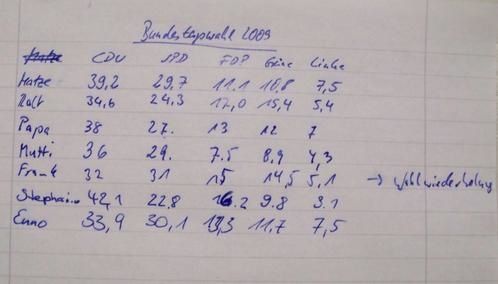 Bundestagswahl 2009
CDU SPD FDP Grüne Linke
Matze 39,2 29,7 11.1 10,8 7,5
Ralf 34,6 24,3 17,0 15,4 5,4
Papa 38 27. 13 12 7
Mutti 36 29. 7.5 8,9 4,3
Frank 32 31 15 14,5 5,1 → Wahlwiederholung
Stephanie 42,1 22,8 16.2 9.8 9.1
Enno 33,9 30,1 13,3 11,7 7,5